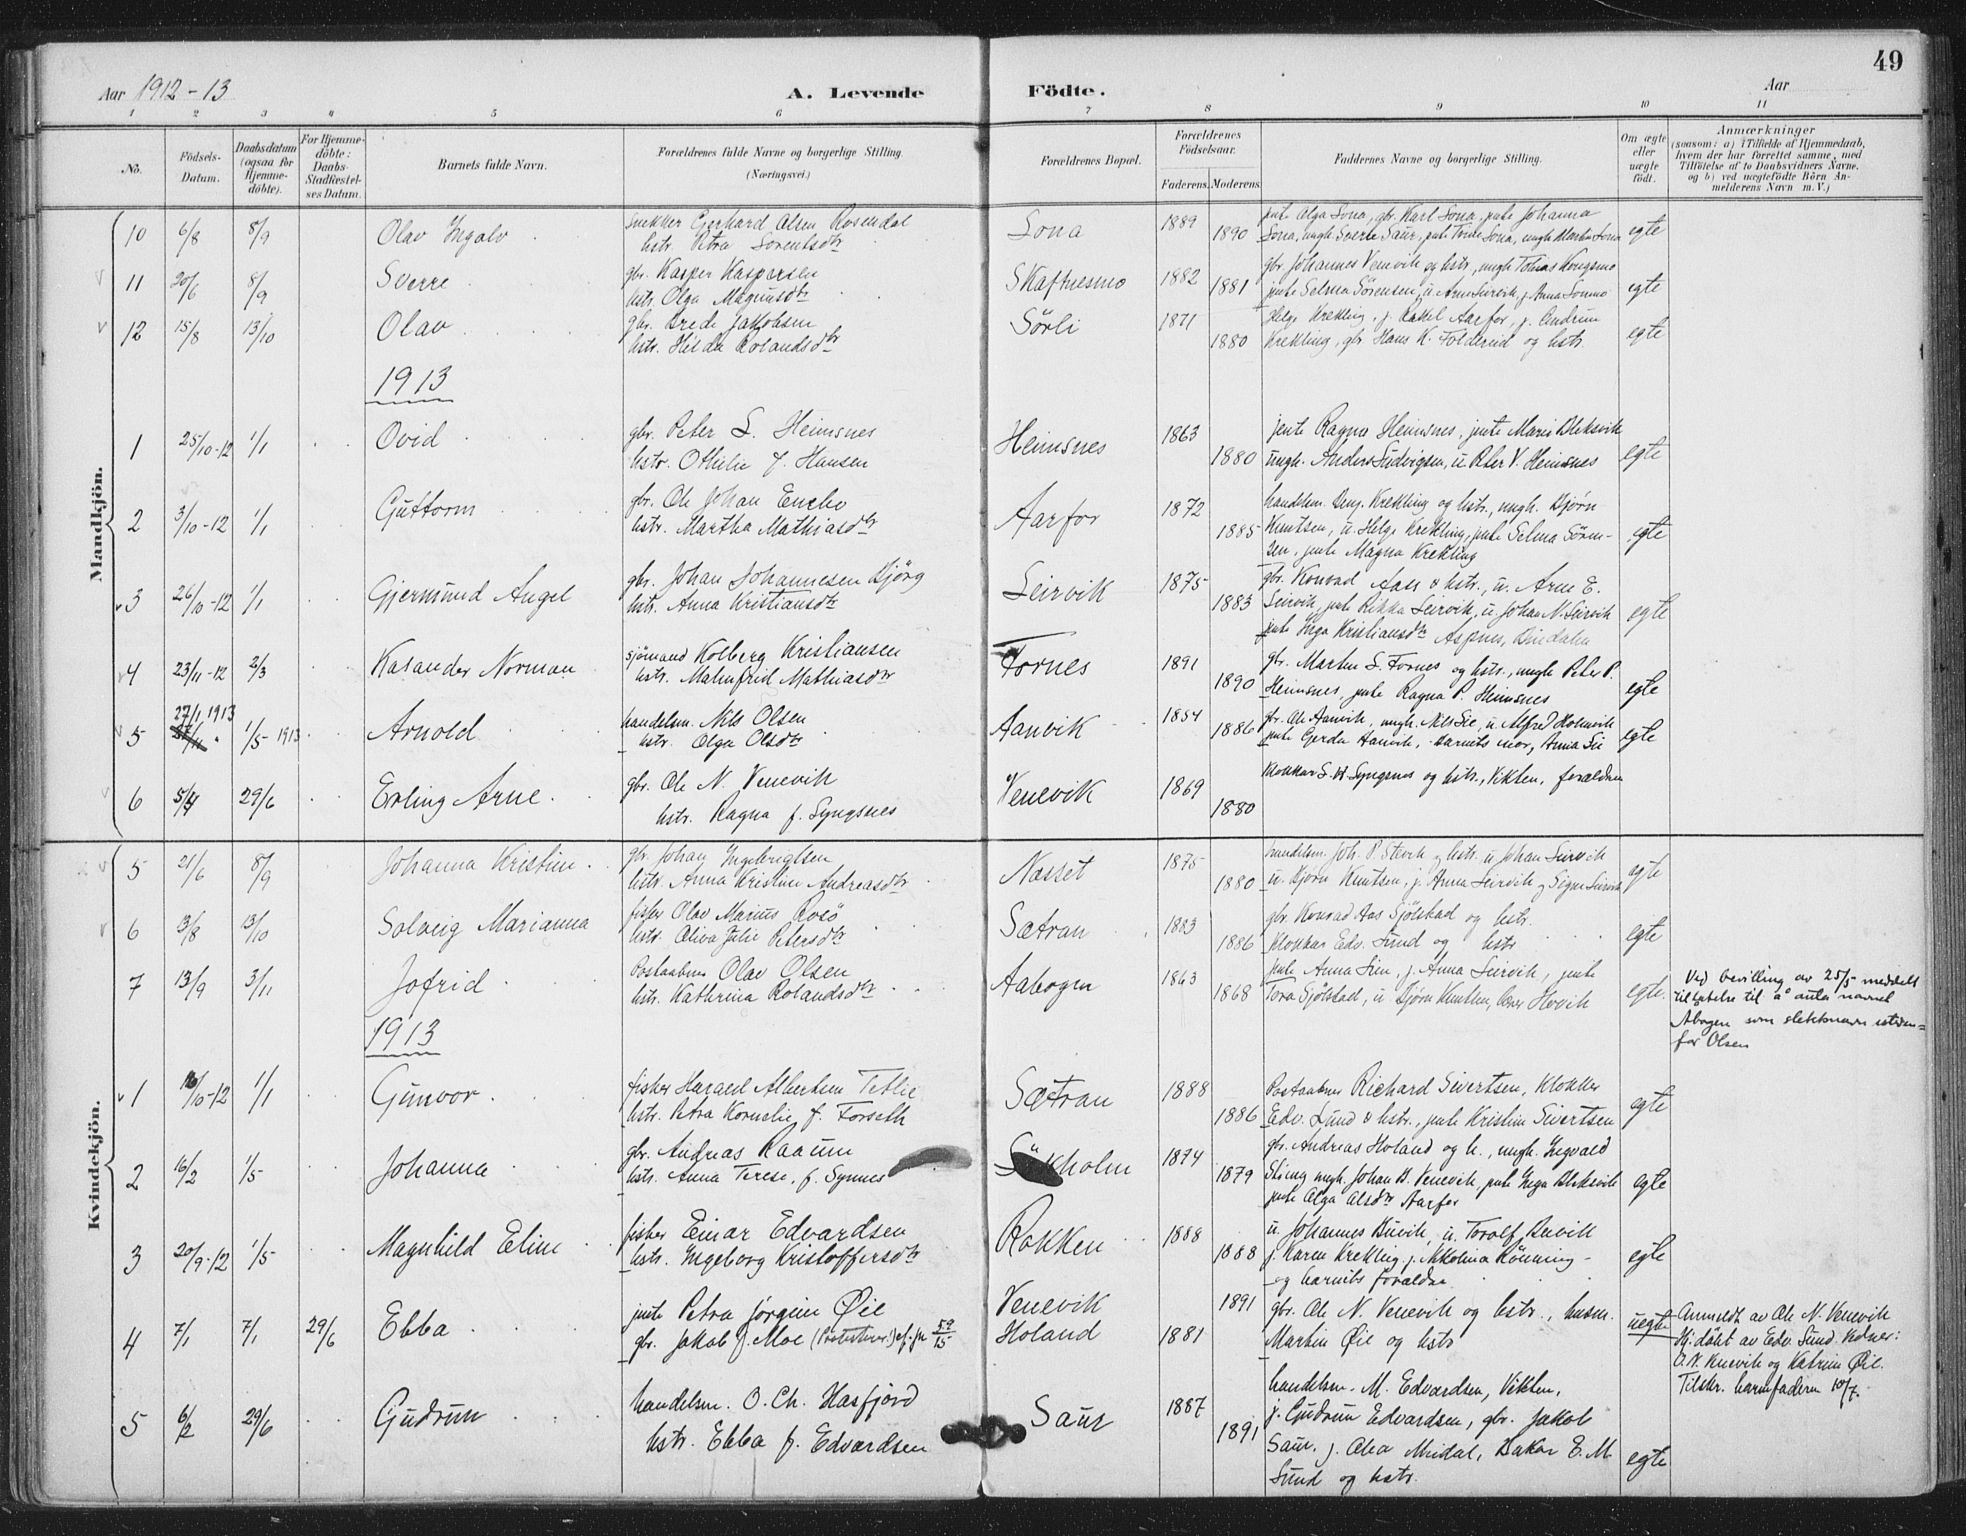 49
Aar 1912-13
A. Levende Födte.
Aar
1 2 3 4 5 6 7 8 9 10 11
No.
Födsels-Datum.
Daabsdatum (ogsaa for Hjemme-döbte).
For Hjemme-döbte: Daabs-Stadfæstel-ses Datum.
Barnets fulde Navn.
Forældrenes fulde Navne og borgerlige Stilling. (Næringsvei.)
Forældrenes Bopæl.
Forældrenes Födselsaar.
Faderens. Moderens.
Faddernes Navne og borgerlige Stilling.
Om ægte eller uægte födt.
Anmærkninger
(saasom: a) i Tilfælde af Hjemmedaab,
hvem der har forrettet samme, med
Tilföielse af to Daabsvidners Navne,
og b) ved uægtefödte Börn An-
melderens Navn m. V.)
Mandkjön.
10 6/8 8/9 Olav Ingolv
snekker Gerhard Olsen Rosendal
hstr. Petra Lorentsdtr
Sona 1889 1890
jente Olga Sona, gbr. Karl Sona, jente Johanna
Sona, ungk. Sverre Saur, jente Tomine Sona, ungk Martin Sona
egte
11 20/6 8/9 Sverre
gbr. Kasper Kaspersen
hstr. Olga Magnusdtr
Skaftnesmo 1882 1881
gbr. Johannes Venevik og hstr., ungk Tobias Kongsmo
jente Selma Sörensen, u. Arne Leirvik, j. Anna Sonmo
egte
12 15/8 13/10 Olav
gbr. Brede Jakobsen
hstr. Hilda Rolandsdtr
Sörli 1871 1880
Helge Krekling, j. Rakel Aarfor, j. Gudrun
Krekling, gbr Hans K. Folderud og hstr.
egte
1913
1 25/10-12 1/1 Ovid
gbr. Peter L. Heimsnes
hstr. Othilie f. Hansen
Heimsnes 1863 1880
jente Ragna Heimsnes, jente Marie Bleksvik
ungk. Anders Ludvigsen, u. Peter V. Heimsnes
egte
2 3/10-12 1/1 Guttorm
gbr. Ole Johan
hstr. Martha Mathiasdtr
Aarfor 1872 1885
handelsm. Beng. Krekling og hstr., ungk. Bjørn
Knutsen, u. Helge Krekling, jente Selma Sören-
sen, jente Magna Krekling
egte
3 26/10-12 1/1 Gjermund Angel
gbr. Johan Johannesen Bjørg
hstr. Anna Kristiansdtr
Leirvik 1875 1883
gbr. Konrad Aass & hstr., u. Arne E.
Leirvik, jente Rikka Leirvik, u. Johan N. Leirvik
jente Inga Kristiansdtr Aspnes, Bindalen
egte
4 23/11-12 2/3 Kasander Norman
sjömand Kolberg Kristiansen
hstr. Malmfrid Mathiasdtr
Fornes 1891 1890
gbr. Martin L. Fornes og hstr., ungk Peter P.
Heimsnes, jente Ragna P. Heimsnes
egte
5 27/1 1913 1/5-1913 Arnold
handelsm. Nils Olsen
hstr. Olga Olsdtr
Aanvik 1854 1886
gbr. Ole Aanvik, ungk. Nils Lie, u. Alfred Holmvik
jente Gerda Aanvik, barnets mor, Anna Lie
egte
6 5/4 29/6 Erling Arne
gbr. Ole N. Venevik
hstr. Ragna f. Syngsnes
Venevik 1869 1880
klokker Syngsnes og hstr., Vikten, forældrene
Kvindekjön.
5 21/6 8/9 Johanna Kristine
gbr. Johan Ingebrigtsen
hstr. Anna Kristine Andreasdtr
Nasset 1875 1880
handelsm. Joh. P. Stevik og hstr. u. Johan Leirvik
u. Bjørn Knutsen, j. Anna Leirvik og Signe Leirvik
egte
6 13/8 13/10 Solveig Marianna
fisker Olav Marius Rosö
hstr. Oliva Julie Petersdtr
Sætran 1883 1886
gbr. Konrad Aas Sjölstad og hstr.
klokker Edv. Lund og hstr
egte
7 13/9 3/11 Jofrid
Postaabner Olav Olsen
hstr. Kathrina Rolandsdtr
Aabogen 1863 1868
jente Anna Lien, j. Anna Leirvik, jente
Tora Sjölstad, u. Bjørn Knutsen, lærer Hovik
egte.
Ved bevilling av 25/5 meddelt
tillatelse til å anta navnet
Åbogen som slektsnavn isteden-
for Olsen
1913
1 16/10-12 1/1 Gunvor
fisker Harald Albertsen Tetlie
hstr. Petra Kornelie f. Forseth
Sætran 1888 1886
Postaabner Richard Sivertsen, klokker
Edv. Lund & hstr., jente Kristine Sivertsen
egte
2 16/2 1/5 Johanna
gbr. Andreas Raaum
hstr. Anna Terese, f. Synnes
1874 1879
gbr. Andreas Hovand og h., ungk. Ingvald
ungk. Johan B. Venevik, jente Inga Bleksvik
jente Olga Olsdtr Aarfor
egte
3 20/9-12 1/5 Magnhild Eline
fisker Einar Edvardsen
hstr. Ingeborg Kristoffersdtr
Rokken 1888 1888
u. Johannes Buvik, u. Torolf Buvik
j. Karen Krekling, j. Nikolina Rönning
og barnets forældre
egte
4 7/1 7/1 29/6 Ebba
jente Petra Jörgine Öie
gbr. Jakob J. Moe cf. jn 59/15
Venevik
Holand 1881 1891
gbr. Ole N. Venevik og hstr., husm.
Martin Öie og hstr
uegte
Anmeldt av Ole N. Venevik
Hj. döbt av Edv. Lund. Vidner:
O.N. Venevik og Katrine Öie.
Tilskr. barnefaderen 10/7.
5 6/2 29/6 Gudrun
handelsm. O. Ch. Hasfjord
hstr. Ebba f. Edvardsen
Saur 1887 1891
handelsm. M. Edvardsen, Vikten,
j. Gudrun Edvardsen, gbr. Jakob
Saur, j. Olea Mudal, Bakar E. M.
Lund og hstr.
egte